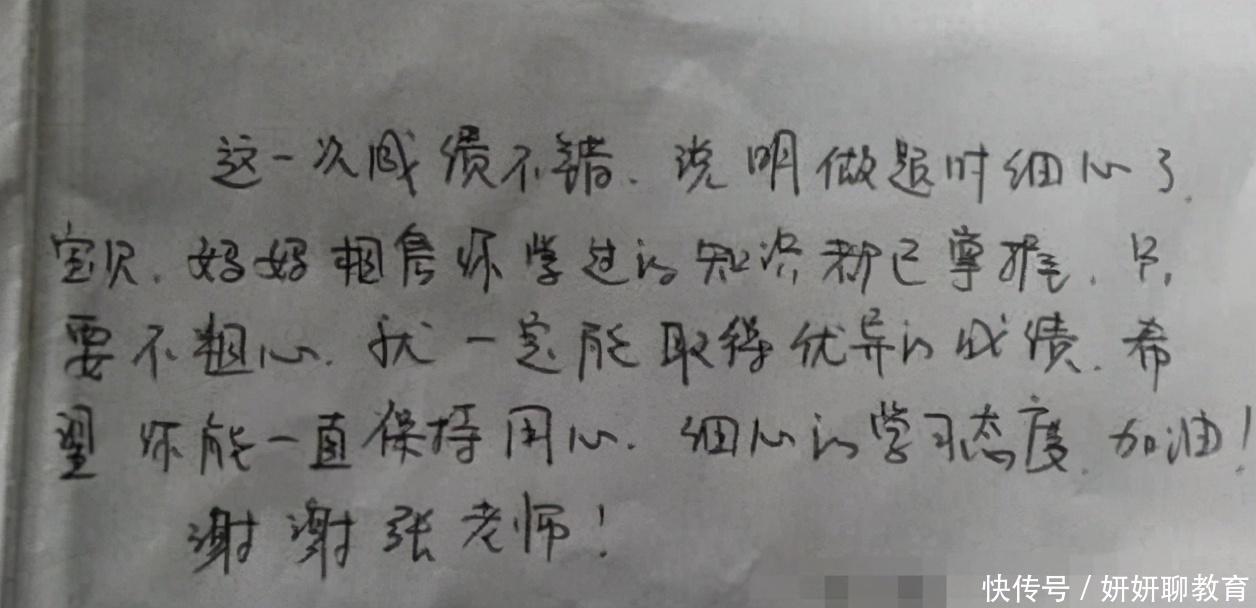 这一次成绩不错、说明做题时细心了.
宝贝、妈妈相信你学过的知识都已掌握、只
要不粗心、就一定能取得优异的成绩、希
望你能一直保持用心、细心的学习态度、加油!
谢谢张老师!
快传号/妍妍聊教育